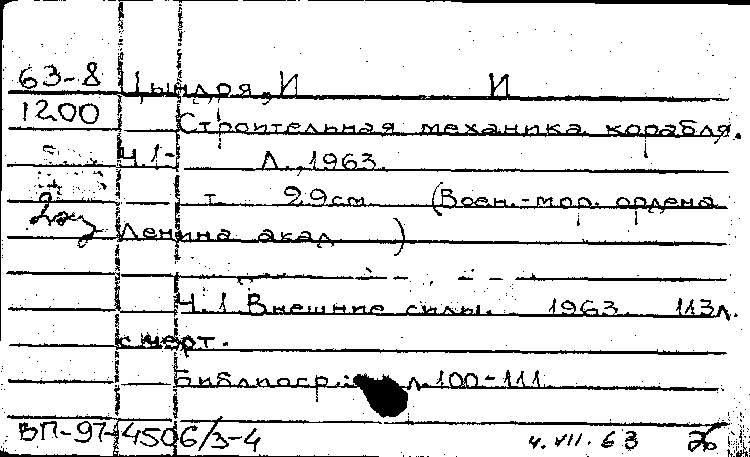 63-8 Цындря, И И
1200 Строительная механика корабля.
Ч.1- Л., 1963.
т. 29см (Воен.-мор. ордена
2экз Ленина акад )
Ч.1 Внешние силы. 1963. 113л.
с черт.
Библиогр.: л.100-111
ВП-97-4506/3-4 4.VII.63